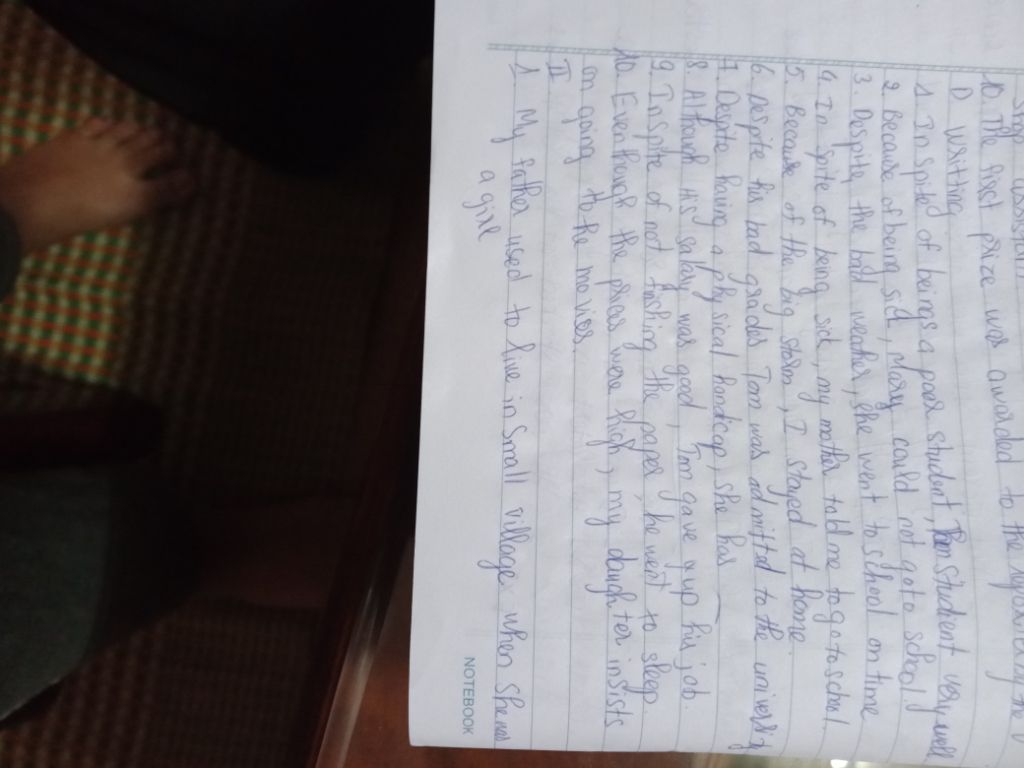 10. The first prize was awarded to the
D writting
1. In spite of beings a poor student, student very well
2. Because of being sick, Mary could not go to school.
3. Despite the bad weather, she went to school on time
4. In spite of being sick, my mother told me to go to school.
5. Because of the big storm, I stayed at home.
6. Despite his bad grades Tom was admitted to the university
7. Despite having a physical handcap, she has
8. Although His salary was good, Tom gave qup his job.
9. Inspite of not finshing the paper, he went to sleep.
10. Even though the prices were high, my daughter insists
on going to the movies.
II
1. My father used to live in small village when She was
a girl
NOTEBOOK